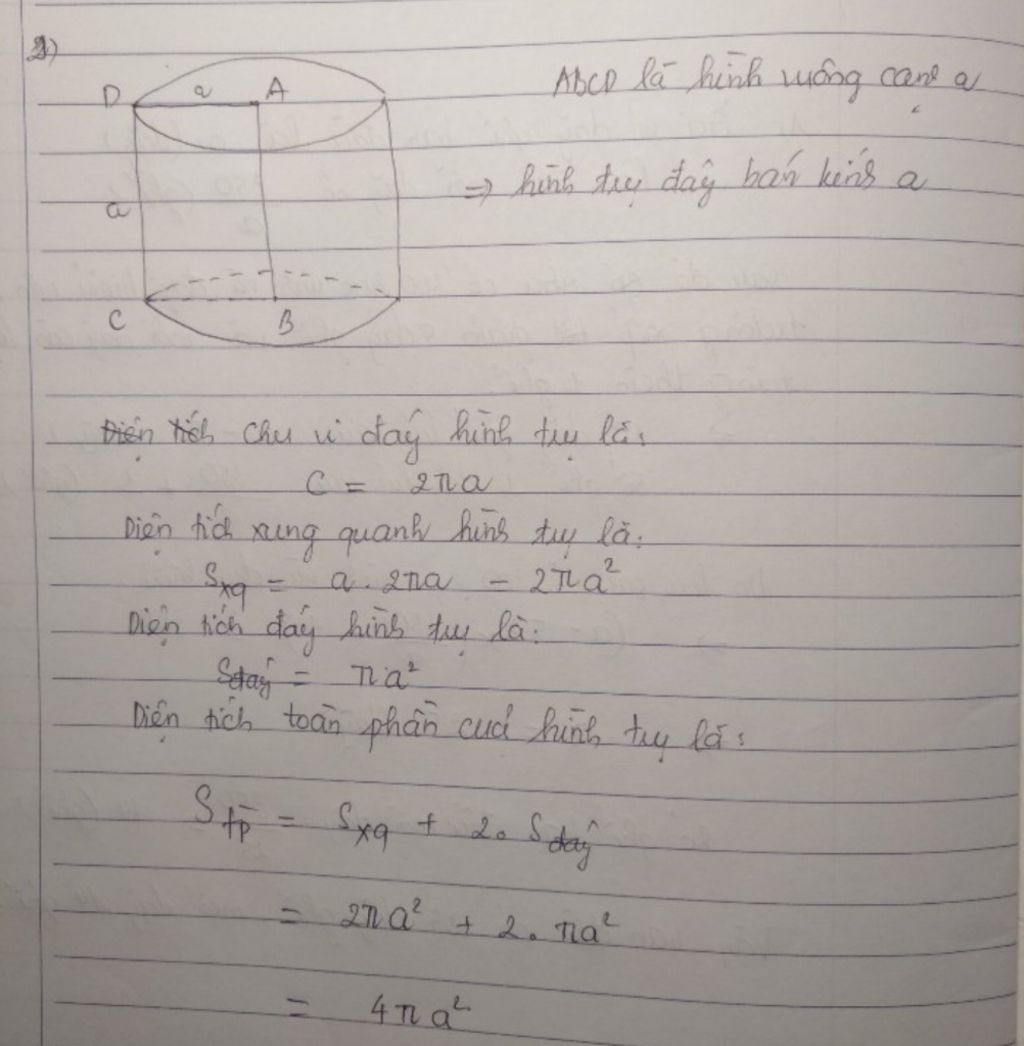 2)
D a A
ABCD là hình vuông cạnh a
a
=> hình trụ đáy bán kính a
C B
Diện tích chu vi đáy hình trụ là:
C = 2πa
Diện tích xung quanh hình trụ là:
Sxq = a . 2πa = 2πa²
Diện tích đáy hình trụ là:
Sđáy = πa²
Diện tích toàn phần của hình trụ là:
Stp = Sxq + 2. Sđáy
= 2πa² + 2. πa²
= 4πa²